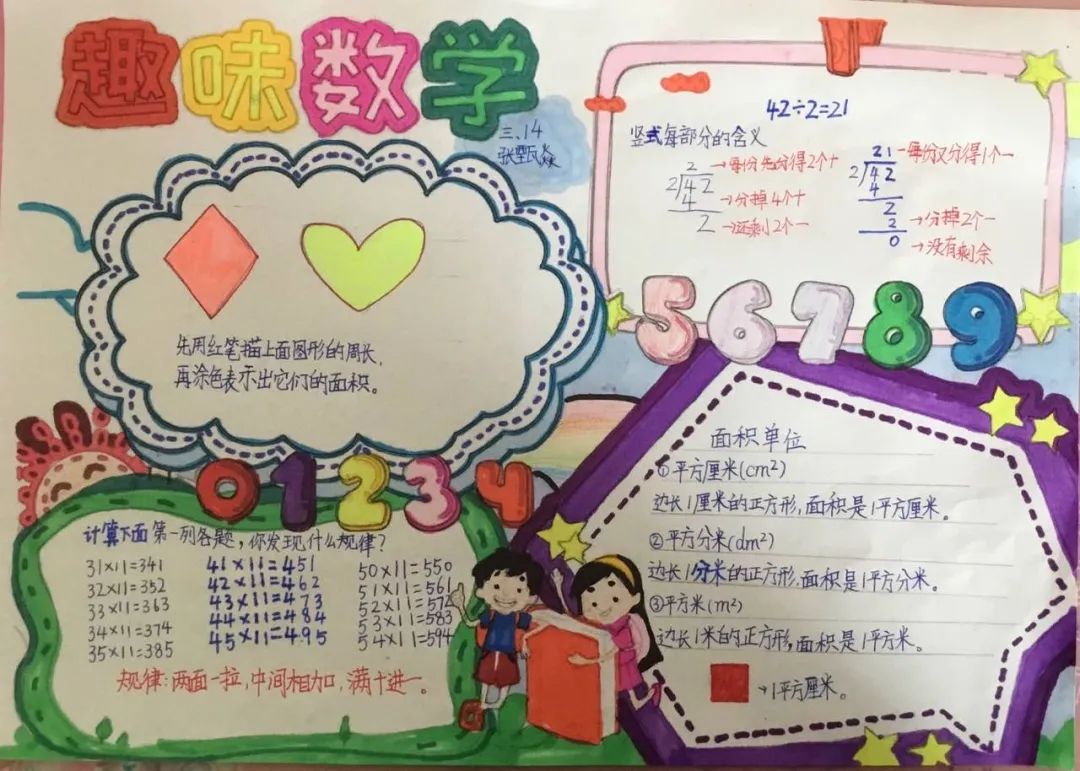 趣味数学
三、14
42÷2=21
竖式每部分的含义
2 →每份先分得2个十
2 42
4 →分掉4个十
2 →还剩2个一
21 -每份又分得1个一
2 42
4
2
2 →分掉2个一
0 →没有剩余
先用红笔描上面图形的周长,
再涂色表示出它们的面积。
5 6 7 8 9
0 1 2 3 4
计算下面第一列各题,你发现什么规律?
31×11=341 41×11=451 50×11=550
32×11=352 42×11=462 51×11=561
33×11=363 43×11=473 52×11=572
34×11=374 44×11=484 53×11=583
35×11=385 45×11=495 54×11=594
规律:两面一拉,中间相加,满十进一。
面积单位
①平方厘米(cm²)
边长1厘米的正方形,面积是1平方厘米。
②平方分米(dm²)
边长1分米的正方形,面积是1平方分米。
③平方米(m²)
边长1米的正方形,面积是1平方米。
→1平方厘米。